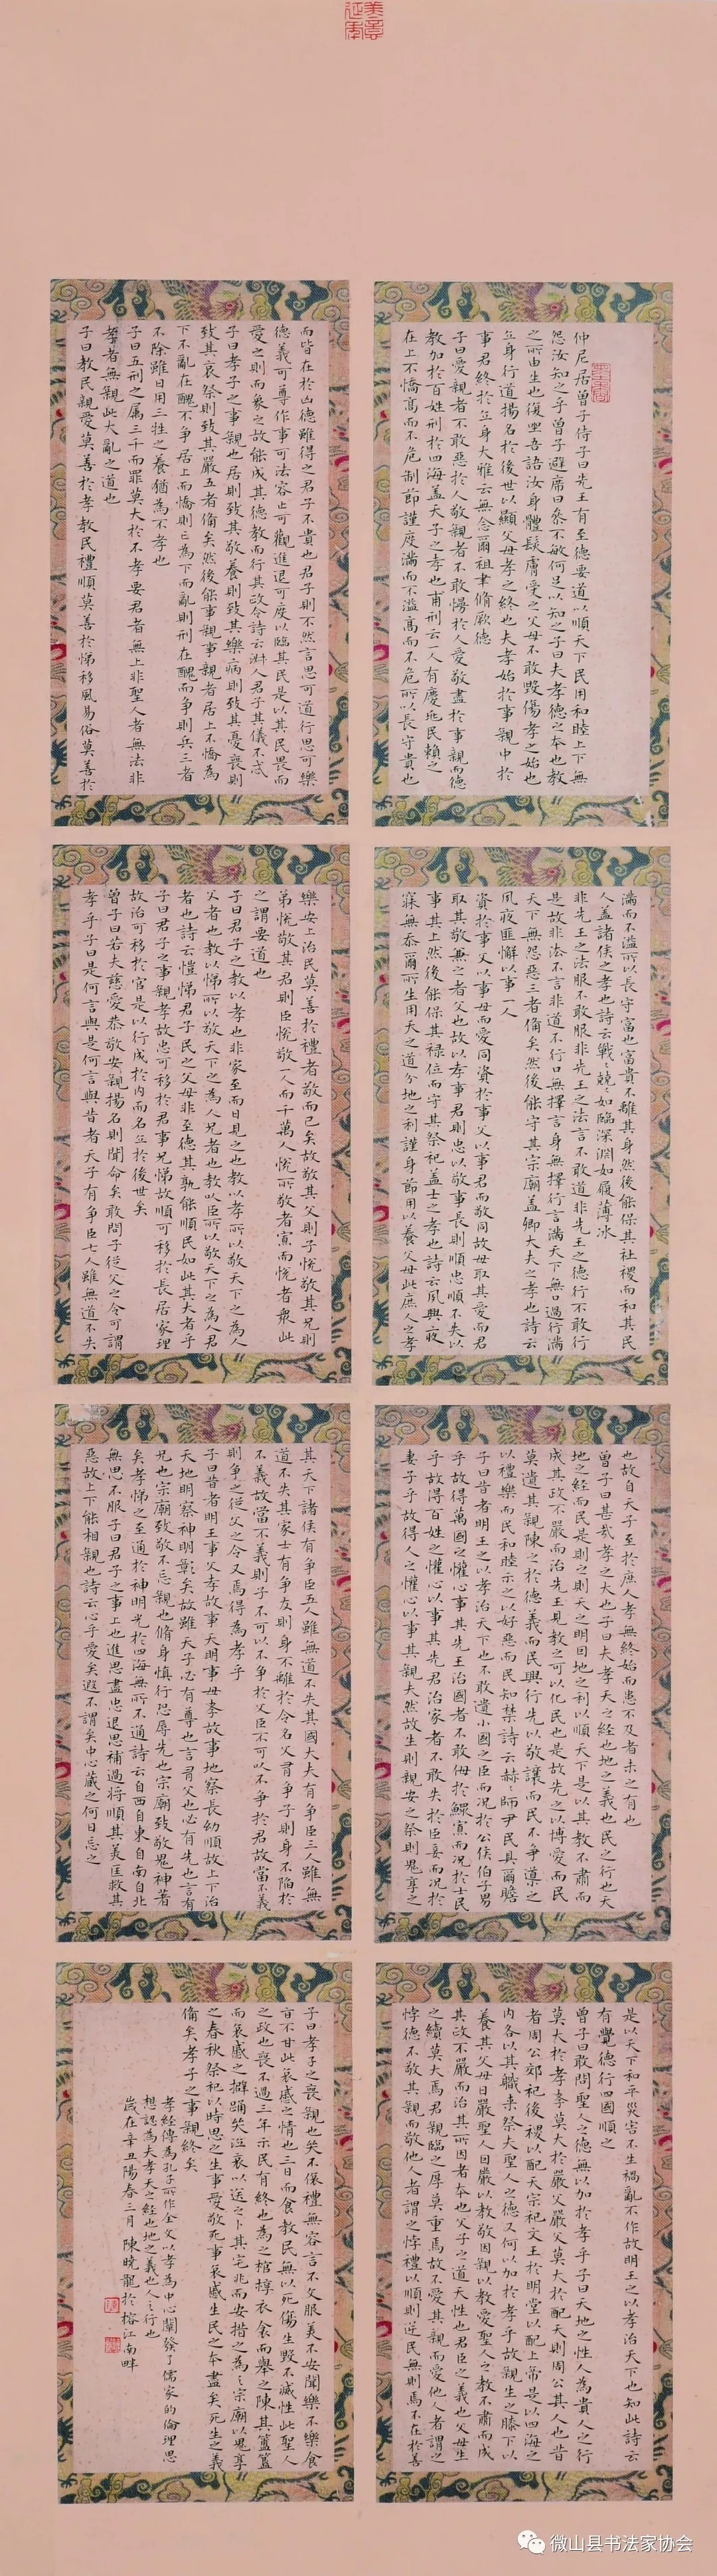 美意延年
仲尼居曾子侍子曰先王有至德要道以順天下民用和睦上下無
怨汝知之乎曾子避席曰參不敏何足以知之子曰夫孝德之本也教
之所由生也復坐吾語汝身體髮膚受之父母不敢毀傷孝之始也
立身行道揚名於後世以顯父母孝之終也夫孝始於事親中於
事君終於立身大雅云無念爾祖聿脩厥德
子曰愛親者不敢惡於人敬親者不敢慢於人愛敬盡於事親而德
教加於百姓刑於四海蓋天子之孝也甫刑云一人有慶兆民賴之
在上不憍高而不危制節謹度滿而不溢高而不危所以長守貴也
滿而不溢所以長守富也富貴不離其身然後能保其社稷而和其民
人蓋諸侯之孝也詩云戰戰兢兢如臨深淵如履薄冰
非先王之法服不敢服非先王之法言不敢道非先王之德行不敢行
是故非法不言非道不行口無擇言身無擇行言滿天下無口過行滿
天下無怨惡三者備矣然後能守其宗廟蓋卿大夫之孝也詩云
夙夜匪懈以事一人
資於事父以事母而愛同資於事父以事君而敬同故母取其愛而君
取其敬兼之者父也故以孝事君則忠以敬事長則順忠順不失以
事其上然後能保其祿位而守其祭祀蓋士之孝也詩云夙興夜
寐無忝爾所生用天之道分地之利謹身節用以養父母此庶人之孝
也故自天子至於庶人孝無終始而患不及者未之有也
曾子曰甚哉孝之大也子曰夫孝天之經也地之義也民之行也天
地之經而民是則之則天之明因地之利以順天下是以其教不肅而
成其政不嚴而治先王見教之可以化民也是故先之以博愛而民
莫遺其親陳之於德義而民興行先以敬讓而民不爭導之
以禮樂而民和睦示之以好惡而民知禁詩云赫赫師尹民具爾瞻
子曰昔者明王之以孝治天下也不敢遺小國之臣而況於公侯伯子男
乎故得萬國之懽心事其先王治國者不敢侮於鰥寡而況於士民
乎故得百姓之懽心以事其先君治家者不敢失於臣妾而況於
妻子乎故得人之懽心以事其親夫然故生則親安之祭則鬼享之
是以天下和平災害不生禍亂不作故明王之以孝治天下也如此詩云
有覺德行四國順之
曾子曰敢問聖人之德無以加於孝乎子曰天地之性人為貴人之行
莫大於孝孝莫大於嚴父嚴父莫大於配天則周公其人也昔
者周公郊祀後稷以配天宗祀文王於明堂以配上帝是以四海之
內各以其職來祭夫聖人之德又何以加於孝乎故親生之膝下以
養其父母日嚴聖人因嚴以教敬因親以教愛聖人之教不肅而成
其政不嚴而治其所因者本也父子之道天性也君臣之義也父母生
之續莫大焉君親臨之厚莫重焉故不愛其親而愛他人者謂之
悖德不敬其親而敬他人者謂之悖禮以順則逆民無則焉不在於善
而皆在於凶德雖得之君子不貴也君子則不然言思可道行思可樂
德義可尊作事可法容止可觀進退可度以臨其民是以其民畏而
愛之則而象之故能成其德教而行其政令詩云淑人君子其儀不忒
子曰孝子之事親也居則致其敬養則致其樂病則致其憂喪則
致其哀祭則致其嚴五者備矣然後能事親事親者居上不憍為
下不亂在醜不爭居上而憍則亡為下而亂則刑在醜而爭則兵三者
不除雖日用三牲之養猶為不孝也
子曰五刑之屬三千而罪莫大於不孝要君者無上非聖人者無法非
孝者無親此大亂之道也
子曰教民親愛莫善於孝教民禮順莫善於悌移風易俗莫善於
樂安上治民莫善於禮者敬而已矣故敬其父則子悅敬其兄則
弟悅敬其君則臣悅敬一人而千萬人悅所敬者寡而悅者眾此
之謂要道也
子曰君子之教以孝也非家至而日見之也教以孝所以敬天下之為人
父者也教以悌所以敬天下之為人兄者也教以臣所以敬天下之為人君
者也詩云愷悌君子民之父母非至德其孰能順民如此其大者乎
子曰君子之事親孝故忠可移於君事兄悌故順可移於長居家理
故治可移於官是以行成於內而名立於後世矣
曾子曰若夫慈愛恭敬安親揚名則聞命矣敢問子從父之令可謂
孝乎子曰是何言與是何言與昔者天子有爭臣七人雖無道不失
其天下諸侯有爭臣五人雖無道不失其國大夫有爭臣三人雖無
道不失其家士有爭友則身不離於令名父有爭子則身不陷於
不義故當不義則子不可以不爭於父臣不可以不爭於君故當不義
則爭之從父之令又焉得為孝乎
子曰昔者明王事父孝故事天明事母孝故事地察長幼順故上下治
天地明察神明彰矣故雖天子必有尊也言有父也必有先也言有
兄也宗廟致敬不忘親也脩身慎行恐辱先也宗廟致敬鬼神著
矣孝悌之至通於神明光於四海無所不通詩云自西自東自南自北
無思不服子曰君子之事上也進思盡忠退思補過將順其美匡救其
惡故上下能相親也詩云心乎愛矣遐不謂矣中心藏之何日忘之
子曰孝子之喪親也哭不偯禮無容言不文服美不安聞樂不樂食
旨不甘此哀慼之情也三日而食教民無以死傷生毀不滅性此聖人
之政也喪不過三年示民有終也為之棺椁衣衾而舉之陳其簠簋
而哀慼之擗踊哭泣哀以送之卜其宅兆而安措之為之宗廟以鬼享
之春秋祭祀以時思之生事愛敬死事哀慼生民之本盡矣死生之義
備矣孝子之事親終矣
孝經傳為孔子所作全文以孝為中心闡發了儒家的倫理思
想認為夫孝天之經也地之義也人之行也
歲在辛丑陽春三月陳曉龍於榕江南畔
微山县书法家协会